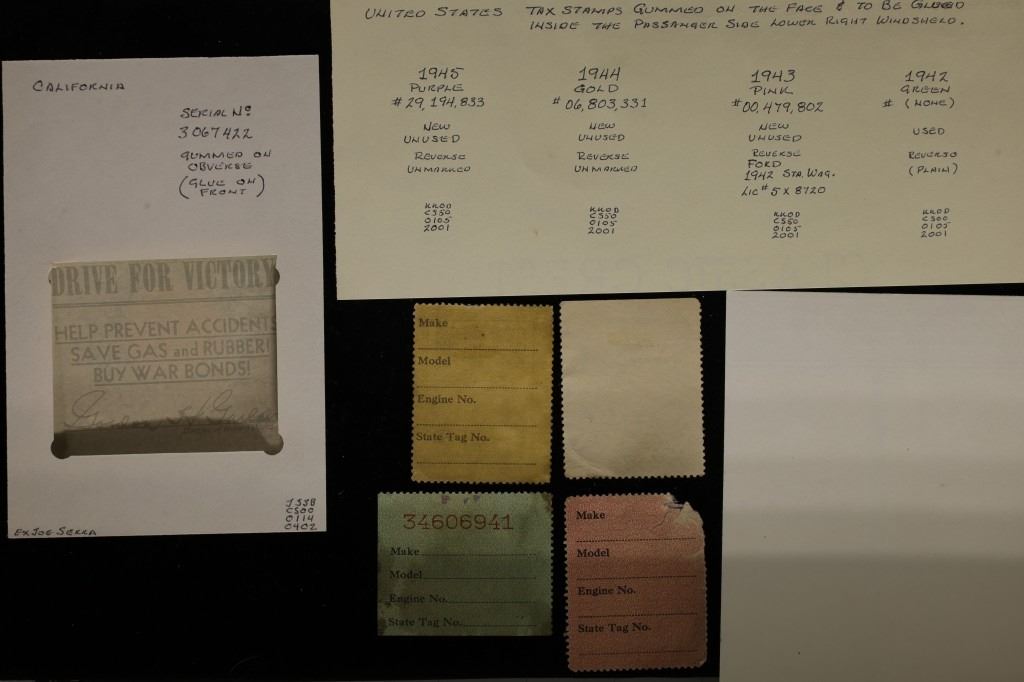 CALIFORNIA
SERIAL No
3067422
GUMMED ON
OBVERSE
(GLUE ON
FRONT)
DRIVE FOR VICTORY
HELP PREVENT ACCIDENTS
SAVE GAS and RUBBER!
BUY WAR BONDS!
JSSB
CS00
0114
0402
EX JOE SERRA
UNITED STATES TAX STAMPS GUMMED ON THE FACE & TO BE GLUED
INSIDE THE PASSANGER SIDE LOWER RIGHT WINDSHIELD.
1945
PURPLE
# 29,194,833
NEW
UNUSED
REVERSE
UNMARKED
KKOD
CS50
0105
2001
1944
GOLD
# 06,803,331
NEW
UNUSED
REVERSE
UNMARKED
KKOD
CS50
0105
2001
1943
PINK
# 00,479,802
NEW
UNUSED
REVERSE
FORD
1942 STA. WAG.
LIC # 5 X 8720
KKOD
CS50
0105
2001
1942
GREEN
# (NONE)
USED
REVERSE
(PLAIN)
KKOD
CS00
0105
2001
Make
Model
Engine No.
State Tag No.
34606941
Make
Model
Engine No.
State Tag No.
Make
Model
Engine No.
State Tag No.